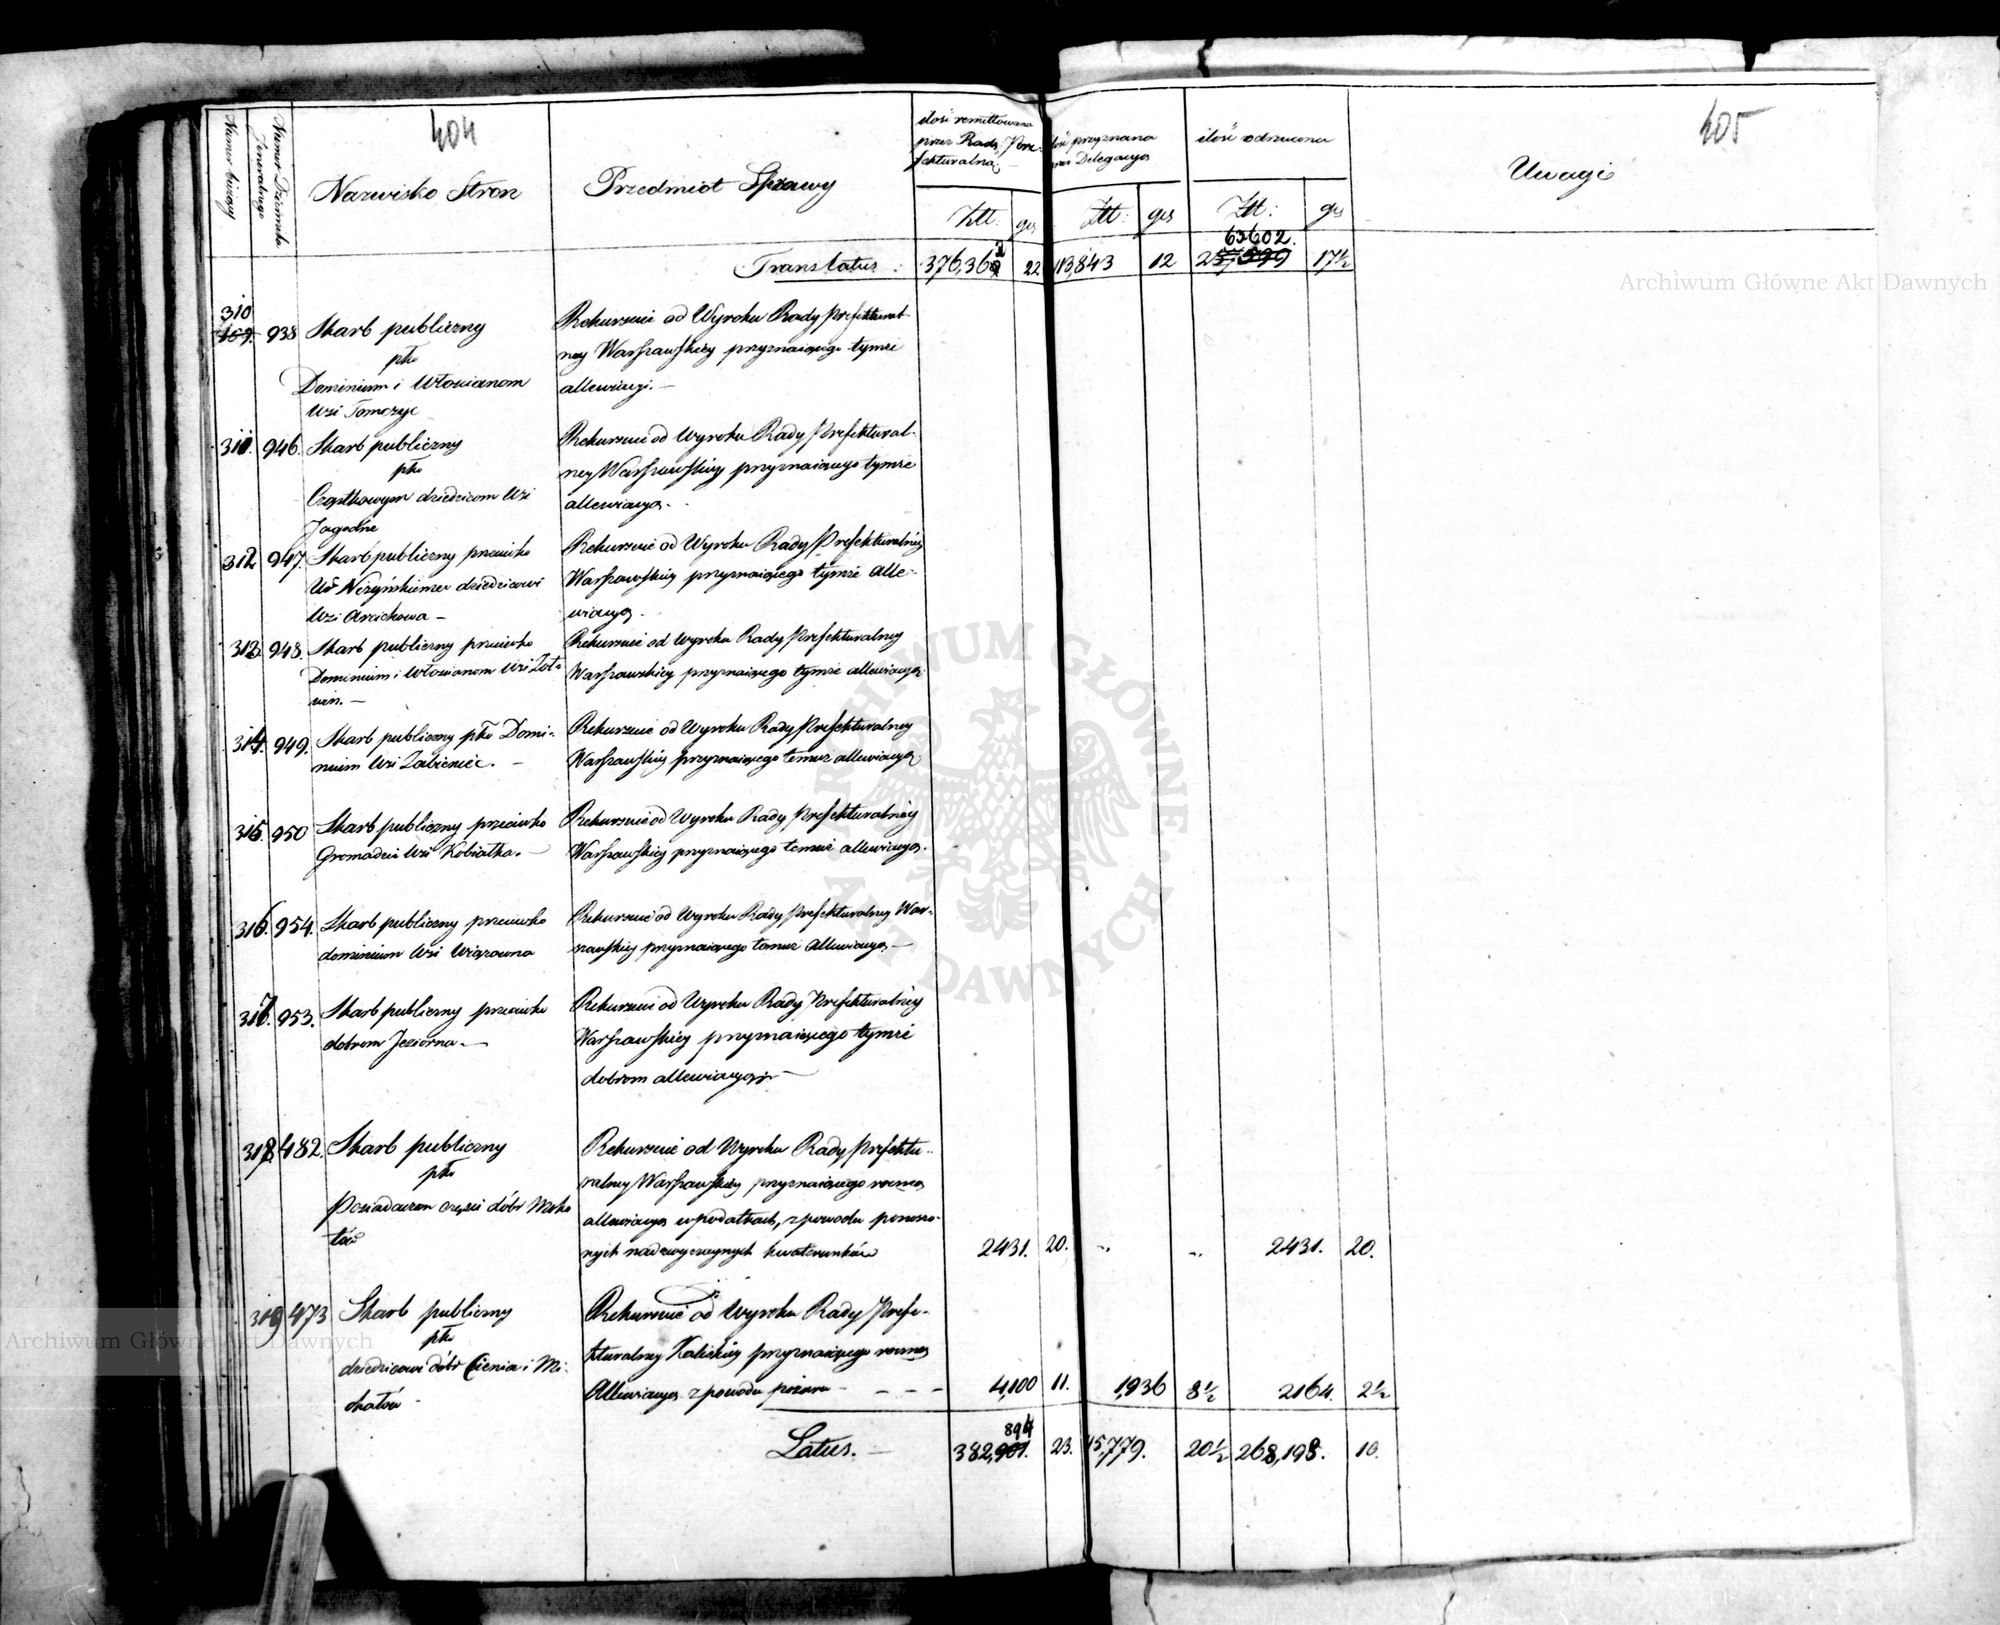 404
405
Numer bieżący
Numer Dziennika
Jeneralnego
Nazwisko Stron
Przedmiot Sprawy
ilość remittowana
przez Radę Pre-
fekturalną
ilość przyznana
przez Delegacyą
ilość odrzucona
Uwagi
Ztt: grs Ztt: grs Ztt: grs
Translatus 376,362 22 113,843 12 263602. 17½
310
938 Skarb publiczny
pko
Dominium i Włościanom
Wsi Tomczyc
Rekursuie od Wyroku Rady Prefektural-
ney Warszawskiey przyznaiącego tymże
allewiacyi.—
311. 946. Skarb publiczny
pko
Cząstkowym dziedzicom Wsi
Jagodne
Rekursuie od Wyroku Rady Prefektural-
ney Warszawskiey przyznaiącego tymże
allewiacyą.
312 947. Skarb publiczny przeciwko
Ur Niżyńskiemu dziedzicowi
Wsi Arciechowa —
Rekursuie od Wyroku Rady Prefekturalney
Warszawskiey przyznaiącego tymże alle-
wiacyą.
313. 948. Skarb publiczny przeciwko
Dominium i Włościanom Wsi
Rekursuie od Wyroku Rady Prefekturalney
Warszawskiey przyznaiącego tymże allewiacyą.
314. 949. Skarb publiczny pko Domi-
nium Wsi Żabieniec. —
Rekursuie od Wyroku Rady Prefekturalney
Warszawskiey przyznaiącego temuż allewiacyą
315. 950 Skarb publiczny przeciwko
Gromadzie Wsi Kobiałka. —
Rekursuie od Wyroku Rady Prefekturalney
Warszawskiey przyznaiącego temuż allewiacyą.
316. 954. Skarb publiczny przeciwko
dominium Wsi Wiązowna
Rekursuie od Wyroku Rady Prefekturalney War-
szawskiey przyznaiącego temuż allewiacyą —
317. 953. Skarb publiczny przeciwko
dobrom Jeziorna. —
Rekursuie od Wyroku Rady Prefekturalney
Warszawskiey przyznaiącego tymże
dobrom allewiacyą —
318 482. Skarb publiczny
pko
Posiadaczom części dóbr Moko
tów
Rekursuie od Wyroku Rady Prefektu-
ralney Warszawskiey przyznaiącego roczną
allewiacyą w podatkach, z powodu ponoszo-
nych nadzwyczaynych kwaterunków 2431. 20. 2431. 20.
319 473 Skarb publiczny
pko
dziedzicowi dóbr Cienia i Mi-
chałów
Rekursuie od Wyroku Rady Prefe-
kturalney Kaliskiey przyznaiącego roczną
Allewiacyą z powodu pożaru — — — 4,100 11. 1,936 8½ 2164. 2½
Latus. — 382,894 23. 115,779. 20½ 268,198. 10.
Archiwum Główne Akt Dawnych
Archiwum Główne Akt Dawnych
ARCHIWUM GŁÓWNE AKT DAWNYCH